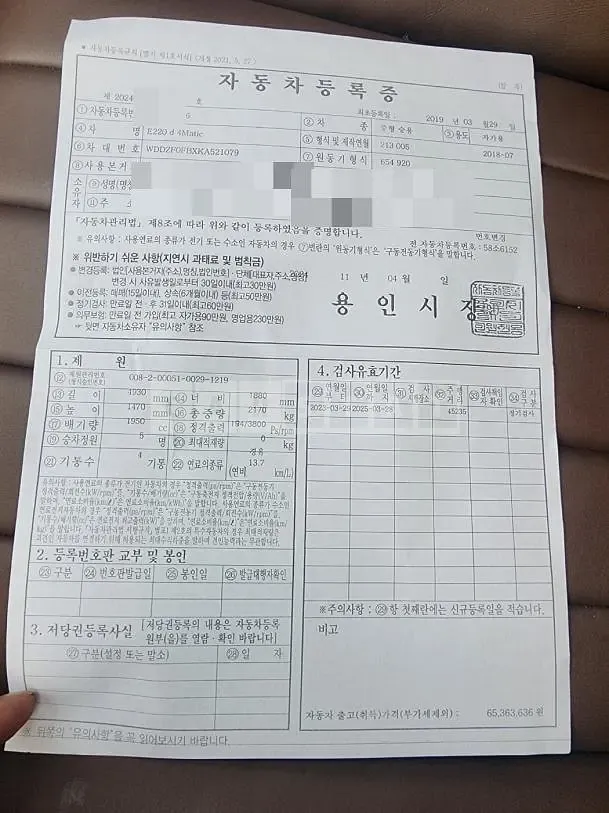 ■ 자동차등록규칙 [별지 제1호서식] <개정 2021. 5. 27>
자동차등록증
제 2024 호
최초등록일 : 2019 년 03 월29 일
① 자동차등록번 6 ② 차 종 중형 승용 ③ 용도 자가용
④ 차 명 E220 d 4Matic ⑤ 형식 및 제작연월 213 005 2018-07
⑥ 차 대 번 호 WDDZF0FBXKA521079 ⑦ 원동기 형식 654 920
⑧ 사용본거
소유자 ⑨ 성명(명칭
⑪ 주 소
「자동차관리법」 제8조에 따라 위와 같이 등록하였음을 증명합니다.
번호변경
전 자동차등록번호 : 58소6152
※ 유의사항 : 사용연료의 종류가 전기 또는 수소인 자동차의 경우 ⑦번란의 '원동기형식'은 '구동전동기형식'을 말합니다.
※ 위반하기 쉬운 사항(지연시 과태료 및 범칙금)
● 변경등록: 법인(사용본거지(주소),명칭,법인번호)·단체(대표자,주소,명칭)
변경 시 사유발생일로부터 30일이내(최고30만원)
● 이전등록: 매매(15일이내), 상속(6개월이내) 등(최고50만원)
● 정기검사: 만료일 전·후 31일이내(최고60만원)
● 의무보험: 만료일 전 가입(최고 자가용90만원, 영업용230만원)
☞ 뒷면 자동차소유자 "유의사항" 참조
11 년 04월 일
용 인 시 장
1. 제 원
⑫ 제원관리번호 (형식승인번호) 008-2-00051-0029-1219
⑬ 길 이 4930 mm ⑭ 너 비 1880 mm
⑮ 높 이 1470 mm ⑯ 총 중 량 2170 kg
⑰ 배 기 량 1950 cc ⑱ 정격출력 194/3800 Ps/rpm
⑲ 승차정원 5 명 ⑳ 최대적재량 0 kg
㉑ 기 통 수 4 기통 ㉒ 연료의종류 경유 (연비 13.7 km/L)
2. 등록번호판 교부 및 봉인
㉓ 구분 ㉔ 번호판발급일 ㉕ 봉인일 ㉖ 발급대행자확인
3. 저당권등록사실 [저당권등록의 내용은 자동차등록
원부(을)를 열람·확인 바랍니다]
㉗ 구분(설정 또는 말소) ㉘ 일 자
4. 검사유효기간
㉙ 연월일 부터 ㉚ 연월일 까지 ㉛ 검사 시행장소 ㉜ 주행거리 ㉝ 검사책임자 확인 ㉞ 검사구분
2023-03-29 2025-03-28 45235 정기검사
※주의사항 : ㉙ 항 첫째란에는 신규등록일을 적습니다.
비고
자동차 출고(취득)가격(부가세제외) : 65,363,636 원
※ 뒤쪽의 "유의사항"을 꼭 읽어보시기 바랍니다.